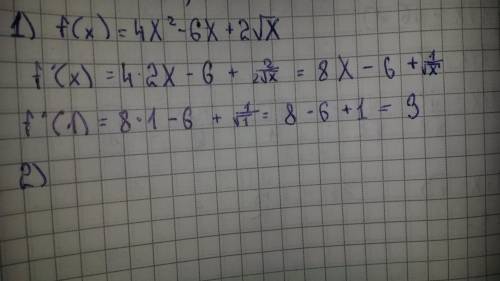 1) f(x) = 4x² - 6x + 2√x
f'(x) = 4·2x - 6 + 2/2√x = 8x - 6 + 1/√x
f'(1) = 8·1 - 6 + 1/√1 = 8 - 6 + 1 = 3
2)